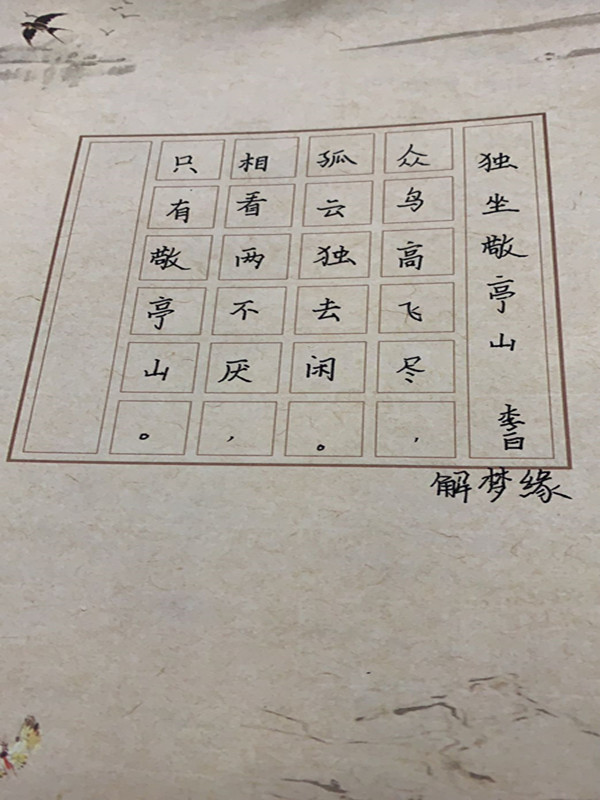 独坐敬亭山 李白
众鸟高飞尽，
孤云独去闲。
相看两不厌，
只有敬亭山。
解梦缘